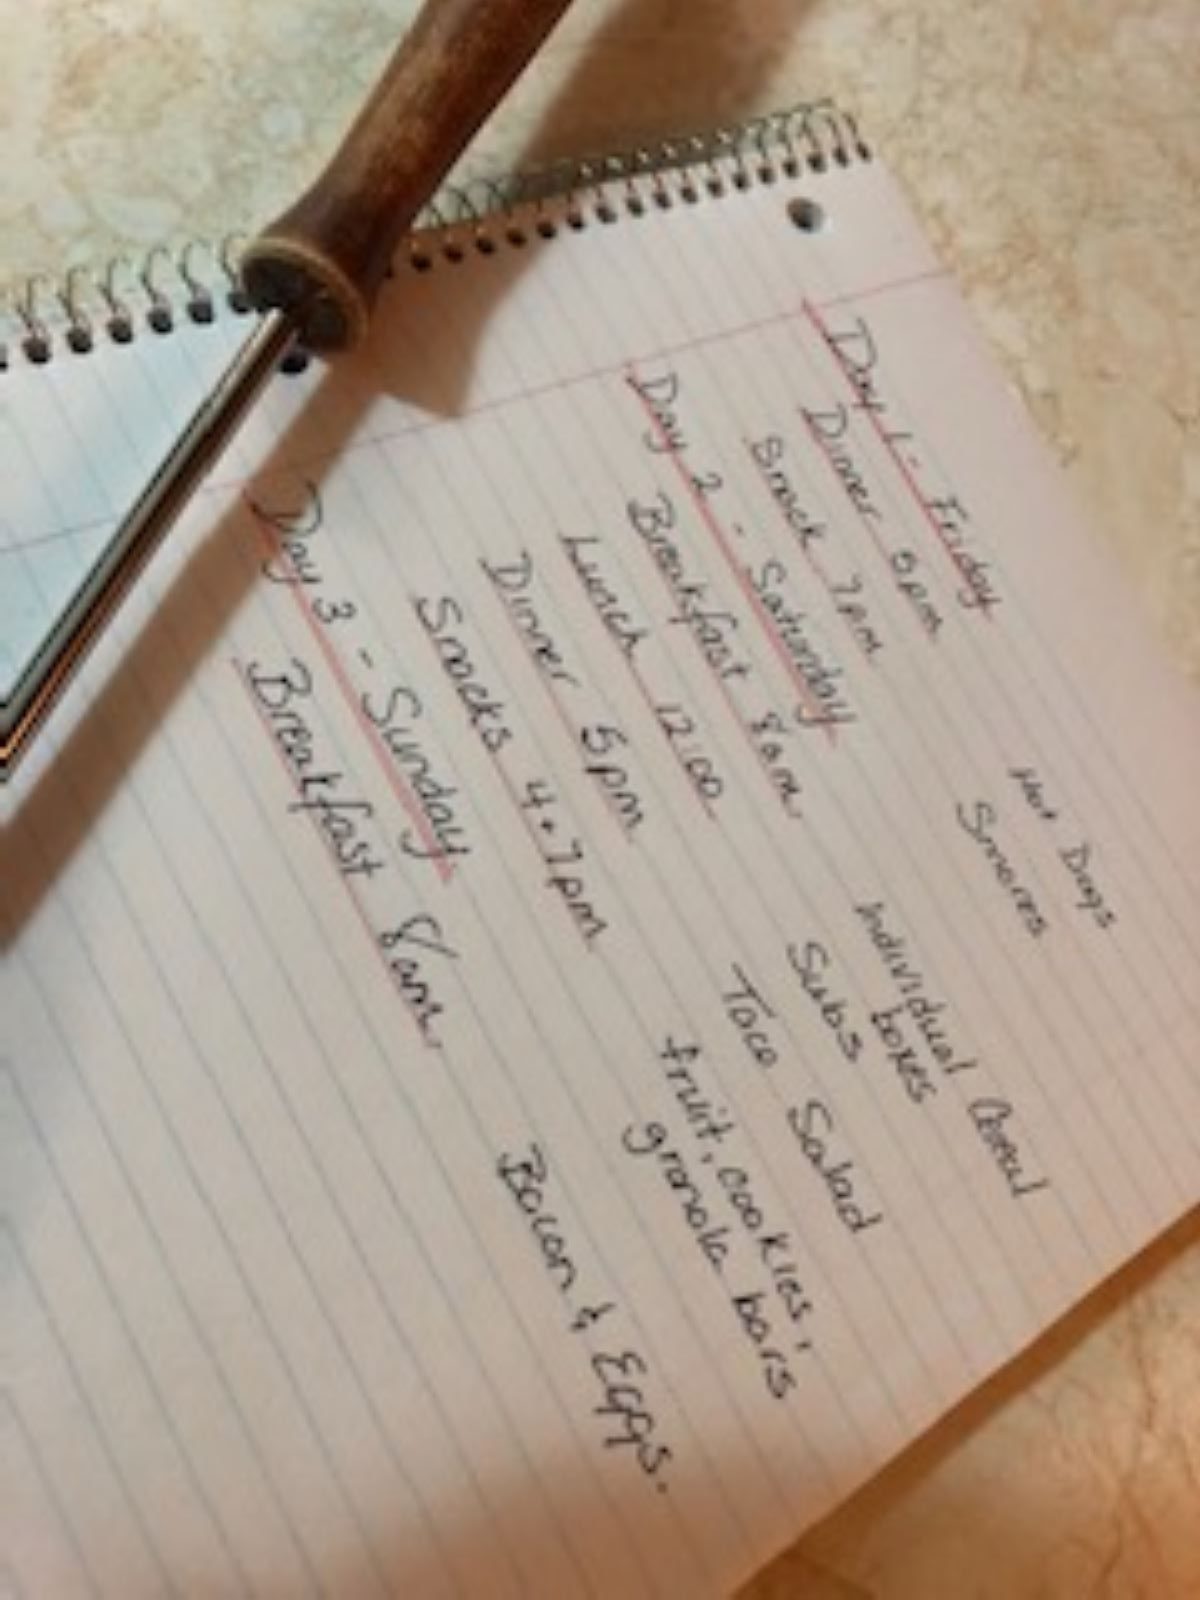 Day 1 - Friday
Dinner 5pm Hot Dogs
Snack 7pm Smores
Day 2 - Saturday
Breakfast 8am Individual Cereal
boxes
Lunch 12:00 Subs
Dinner 5pm Taco Salad
Snacks 4+7pm fruit, cookies,
granola bars
Day 3 - Sunday
Breakfast 8am Bacon & Eggs.